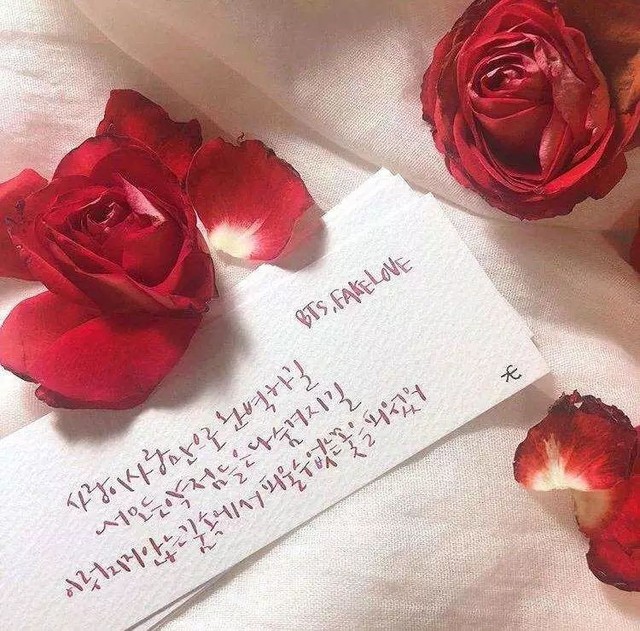 BTS, FAKE LOVE
사랑이 사랑만으로 완벽하길
내 모든 약점들은 다 숨겨지길
이뤄지지 않는 꿈속에서 피울 수 없는 꽃을 피웠어